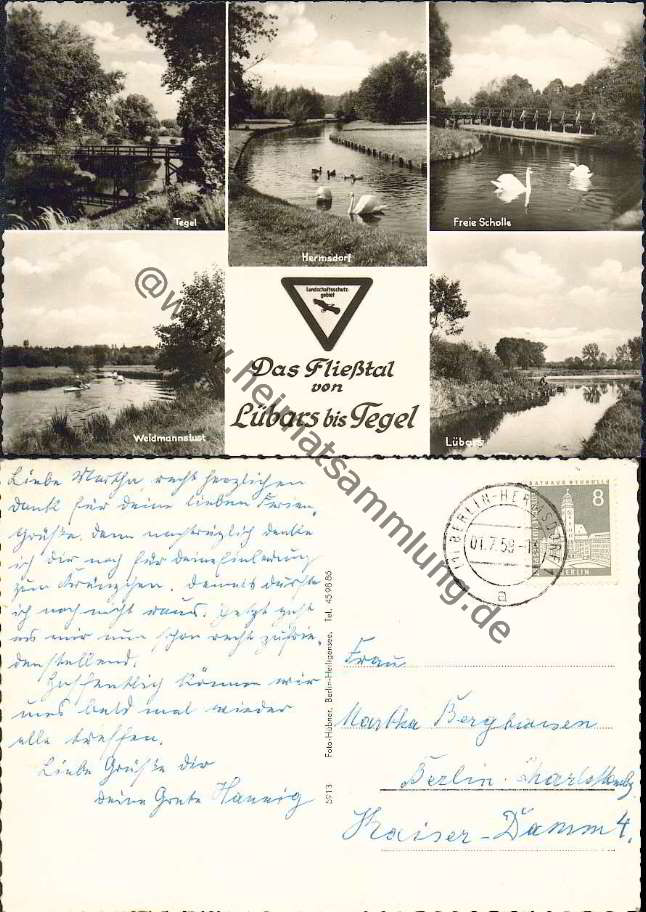 Tegel
Hermsdorf
Freie Scholle
Landschaftsschutz-
gebiet
Das Fließtal
von
Lübars bis Tegel
Weidmannslust
Lübars
@www.heimatsammlung.de
Liebe Martha recht herzlichen
Dank für deine lieben Ferien,
Grüße, denn nachträglich danke
ich dir noch für deine Einladung
zum Kränzchen. Damals durfte
ich noch nicht raus. Jetzt geht
es mir nun schon recht zufrie,
denstellend.
Hoffentlich können wir
uns bald mal wieder
alle treffen.
Liebe Grüße dir
deine Grete Hannig
5913 Foto-Hübner, Berlin-Heiligensee, Tel. 45 98 86
RATHAUS NEUKÖLLN
8
BERLIN
BERLIN-HERMSDORF
01.7.59
a
Frau
Martha Berghausen
Berlin-Charlottenbg
Kaiser-Damm 4.